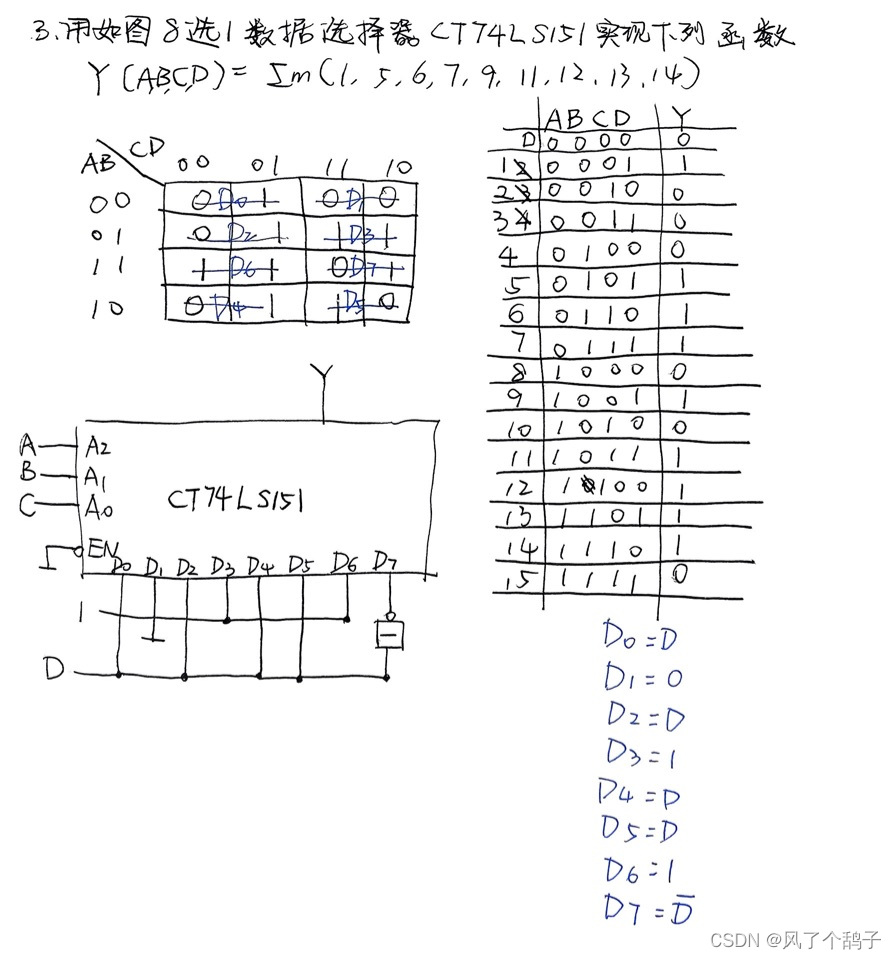 3.用如图8选1数据选择器CT74LS151实现下列函数
Y(A,B,C,D)=Σm(1,5,6,7,9,11,12,13,14)
AB CD 00 01 11 10
00 0 D0 1 0 D1 0
01 0 D2 1 1 D3 1
11 1 D6 1 0 D7 1
10 0 D4 1 1 D5 0
A B C D Y
0 0 0 0 0 0
1 0 0 0 1 1
2 0 0 1 0 0
3 0 0 1 1 0
4 0 1 0 0 0
5 0 1 0 1 1
6 0 1 1 0 1
7 0 1 1 1 1
8 1 0 0 0 0
9 1 0 0 1 1
10 1 0 1 0 0
11 1 0 1 1 1
12 1 1 0 0 1
13 1 1 0 1 1
14 1 1 1 0 1
15 1 1 1 1 0
Y
A A2
B A1
C A0
CT74LS151
EN
D0 D1 D2 D3 D4 D5 D6 D7
1
D
D0=D
D1=0
D2=D
D3=1
D4=D
D5=D
D6=1
D7=D̅
CSDN @风了个鸹子